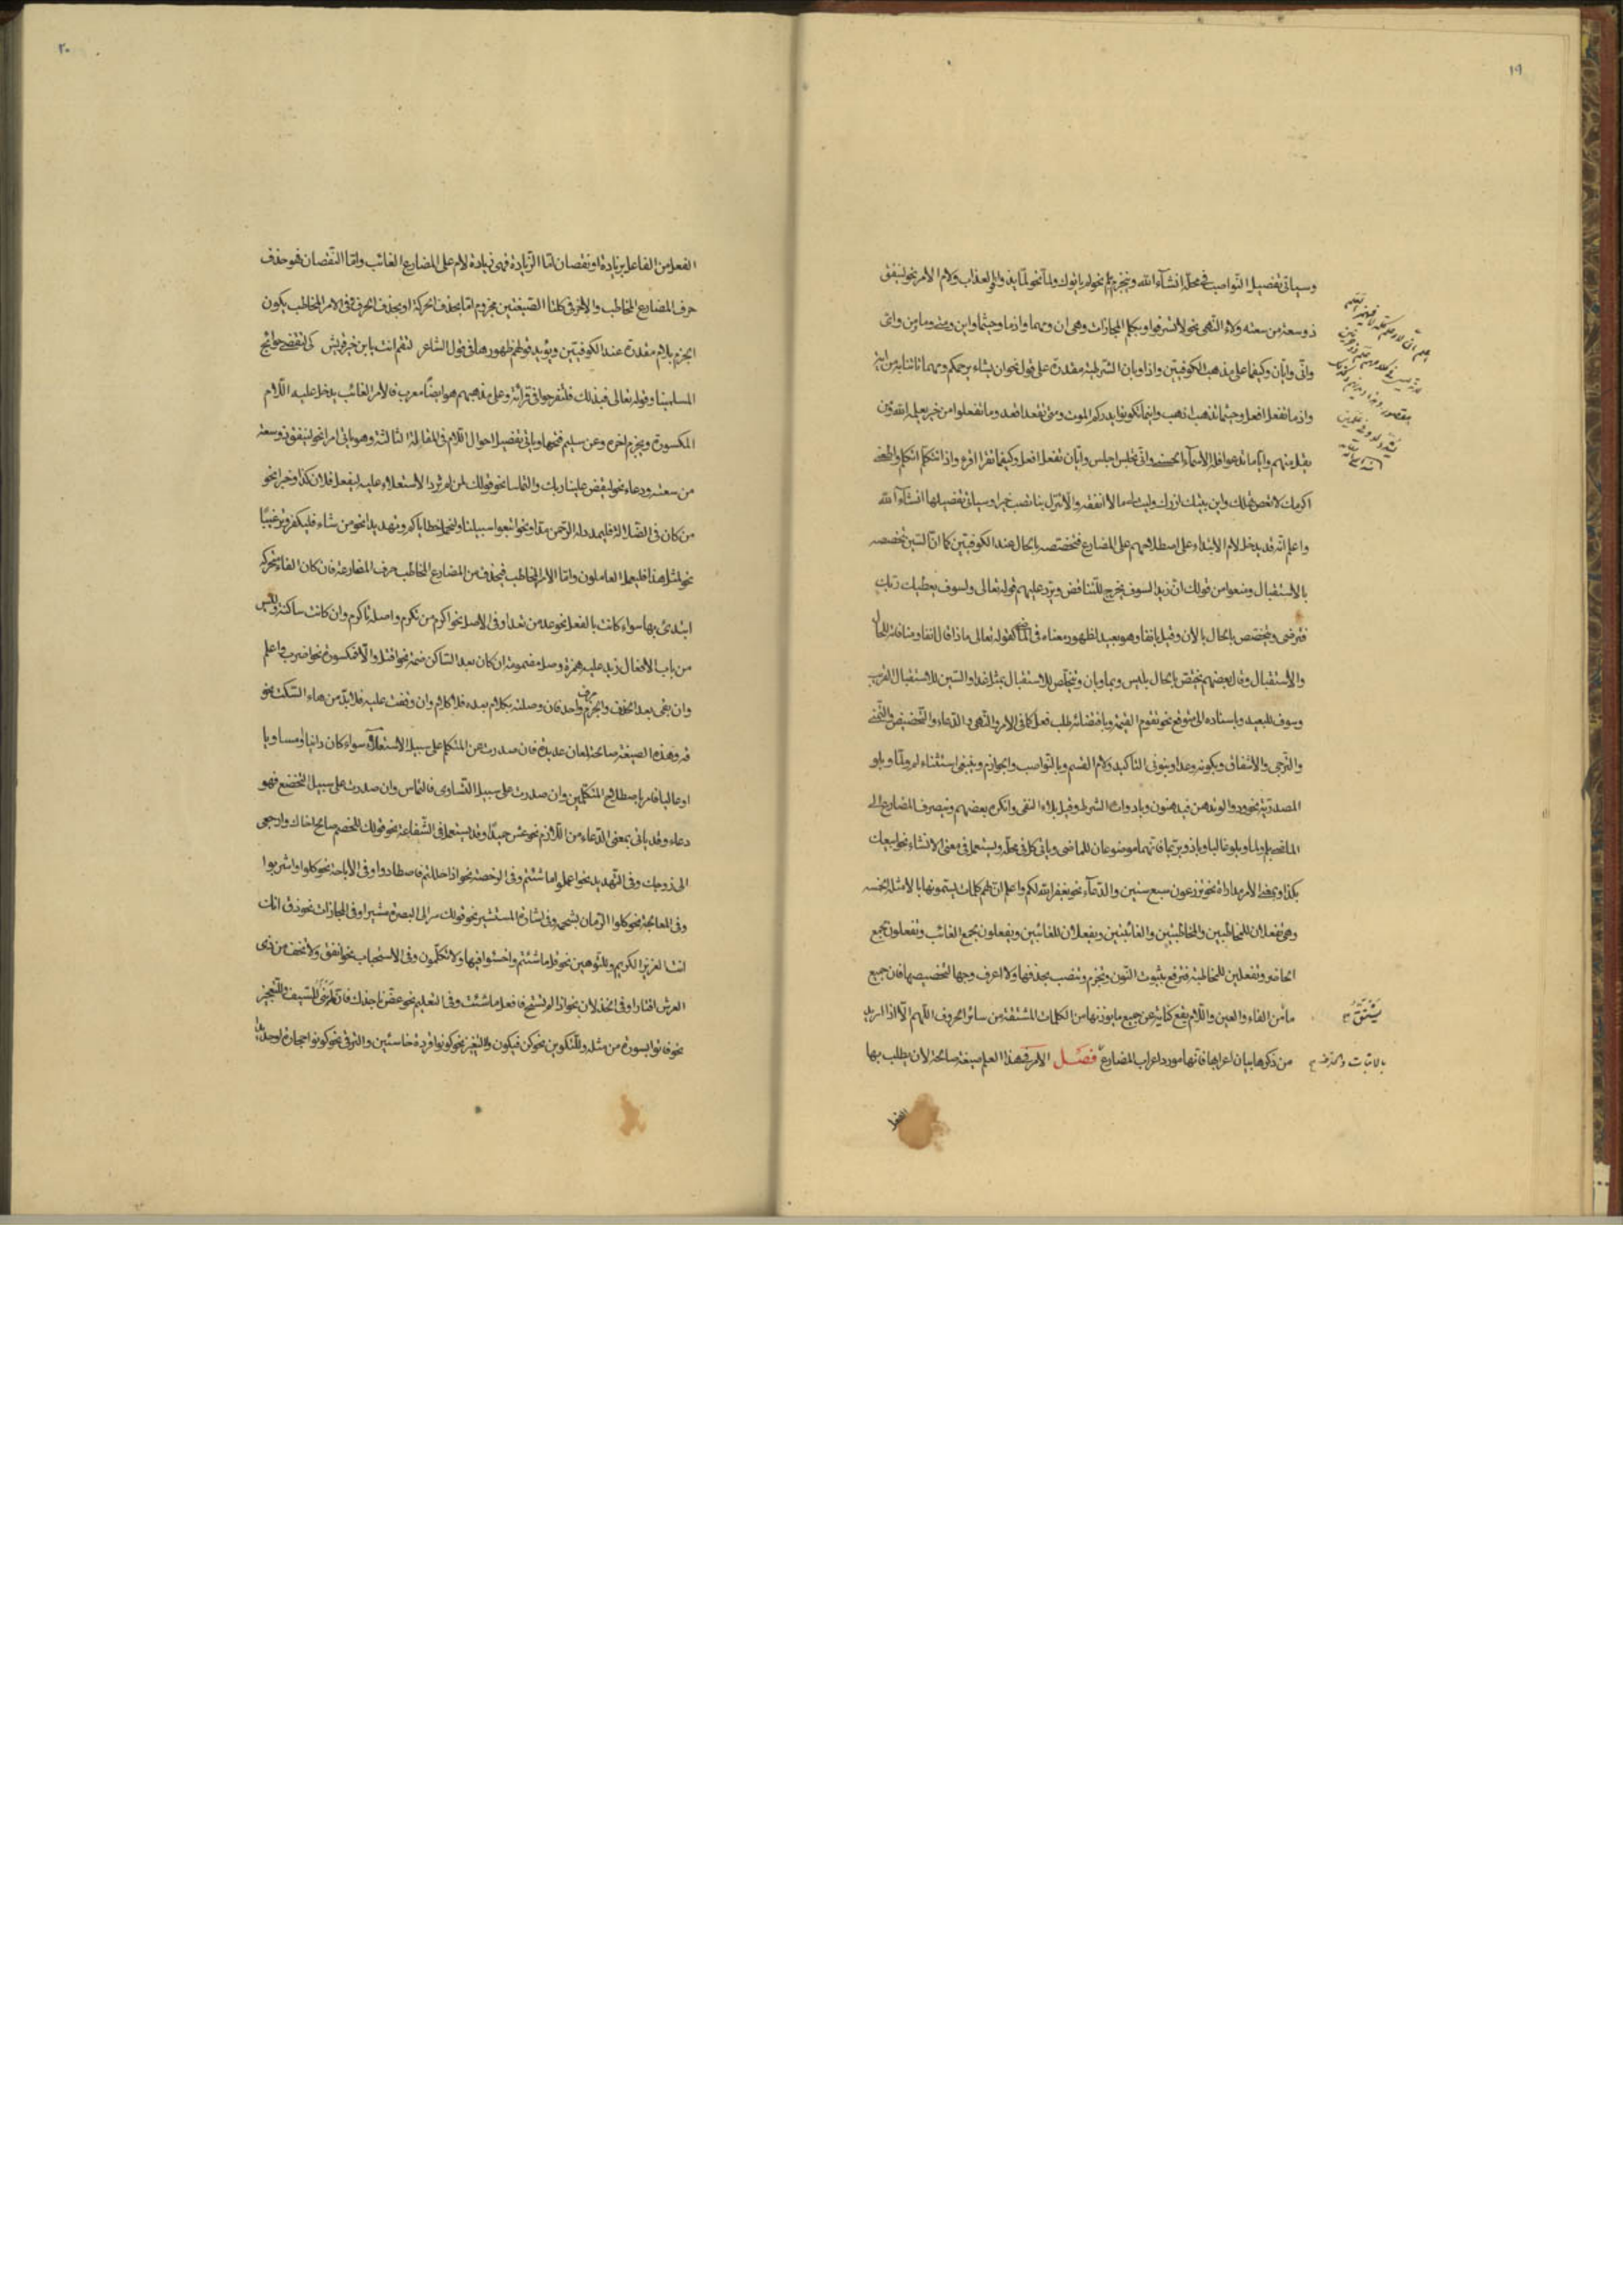 ١٩
وسياتى تفصيل النّواصب فى محلّه انشآء الله وينجزم بلم نحو لم ياتوك ولمّا نحو لمّا يذوقوا العذاب ولام الامر نحو لينفق
ذو سعة من سعته ولاء النّهى نحو لا تسرفوا وبكلم المجازات وهى ان ومهما واذما وحيثما واين ومتى وما ومن واىّ
وانّى وايّان وكيفما على مذهب الكوفيّين واذا وبان الشرطيّة مقدرة على قول نحو ان يشاء يرحمكم ومهما تاتنا به من اية
واذما تفعل افعل وحيثما تذهب اذهب واينما تكونوا يدرككم الموت ومتى تقعد اقعد وما تفعلوا من خير يعلمه الله ومن
يقل منهم وايّاما تدعوا فله الاسمآء الحسنى وانّى تجلس اجلس وايّان تفعل افعل وكيفما تقرا اقرء واذا تتكلّم اتكلّم
اكرمك لا تعص واين بيتك ازورك وليت لى مالا انفقه والا تنزل بنا تصب خيرا وسياتى تفصيلها انشآء الله
واعلم انّه قد يدخل لام الابتداء على اصطلاحهم على المضارع فتختصّه بالحال عند الكوفيّين كما انّ السّين تخصّصه
بالاستقبال ومنعوا من قولك انّ زيدا لسوف يخرج للتّناقض ويرد عليهم قوله تعالى ولسوف يعطيك ربّك
فترضى ويختصّ بالحال بالان وقيل بانفا وهو بعيد لظهور معناه فى الماضى كقوله تعالى ماذا قال انفا ومنافاته للحال
والاستقبال وقال بعضهم يختصّ بالحال بليس وبما وبان ويتخلّص للاستقبال بمثل غدا والسّين للاستقبال القريب
وسوف للبعيد وباسناده الى متوقّع نحو تقوم القيمة وباقتضائه طلب فعل كما فى الامر والنّهى والدّعاء والتّحضيض والتّمنّى
والتّرجى والاشفاق وبكونه وعدا وبنونى التاكيد ولام القسم وبالنّواصب والجوازم وينبغى استثناء لم ولمّا وبلو
المصدريّة نحو ودّوا لو تدهن فيدهنون وبادوات الشرط وقيل بلاء النفى وانكره بعضهم وينصرف المضارع الى
الماضى بلم وبلمّا وبلو غالبا وباذ وبربّما فانّهما موضوعان للماضى وياتى كل فى محلّه ويستعمل فى معنى الانشاء نحو ابيعك
بكذا وبمعنى الامر مداراة نحو تزرعون سبع سنين والدّعآء نحو يغفر الله لكم واعلم انّ لهم كلمات يسمّونها بالامثلة الخمسة
وهى تفعلان للمخاطبين والمخاطبتين والغائبتين ويفعلان للغائبين ويفعلون لجمع الغائب وتفعلون لجمع
الحاضر وتفعلين للمخاطبة فترفع بثبوت النّون وتجزم وتنصب بحذفها ولا اعرف وجها لتخصيصها فان جميع
ما من الفاء والعين واللّام يقع كناية عن جميع ما يوزنها من الكلمات المشتقة من سائر الحروف اللّهم الّا اذا اريد
من ذكرها بيان اعرابها فانّها مورد اعراب المضارع فصل الامر فى هذا العلم صيغة صالحة لان يطلب بها
يشتقّ
بالاثبات والحذف
الفعل
٢٠
الفعل من الفاعل بزيادة او نقصان امّا الزّيادة فهى زيادة لام على المضارع الغائب وامّا النّقصان فهو حذف
حرف المضارع المخاطب والاخر فى كلتا الصّيغتين مجزوم امّا بحذف الحركة او بحذف الحرف وفى الامر المخاطب يكون
الجزم بلام مقدرة عند الكوفيّين ويؤيد قولهم ظهورها فى قول الشاعر لتقم انت يا بن خير قريش كى لتقضى حوائج
المسلمينا وقوله تعالى فبذلك فلتفرحوا فى قرائة وعلى مذهبهم هو ايضًا معرب فالامر الغائب يدخل عليه اللّام
المكسورة ويجزم اخره وعن سليم فتحها وياتى تفصيل احوال اللّام فى المقابلة الثالثة وهو ياتى امرا نحو لينفق ذو سعة
من سعته ودعاء نحو ليقض علينا ربك والتماسا نحو قولك لمن لم ترد الاستعلاء عليه ليفعل فلان كذا وخبرا نحو
من كان فى الضّلالة فليمدد له الرّحمن مدّا ونحو اتبعوا سبيلنا ولنحمل خطاياكم وتهديدا نحو من شاء فليكفر وترغيبًا
نحو لمثل هذا فليعمل العاملون وامّا الامر المخاطب فيحذف من المضارع المخاطب حرف المضارعة فان كان الفاء متحركة
ابتدئ بها سواء كانت بالفعل نحو عد من تعد او فى الاصل نحو اكرم من تكرم واصله تاكرم وان كانت ساكنة وليس
من باب الافعال زيد عليه همزة وصل مضمومة ان كان بعد السّاكن ضمّة نحو اقتل والّا فمكسورة نحو اضرب واعلم
وان بقى بعد الحذف والجزم حرف واحد فان وصلته بكلام بعده فلا كلام وان وقفت عليه فلا بدّ من هاء السّكت نحو
قه وهذه الصيغة صالحة لمعان عديدة فان صدرت عن المتكلّم على سبيل الاستعلاء سواء كان دانيا او مساويا
او عاليا فامر باصطلاح المتكلّمين وان صدرت على سبيل التّساوى فالتماس وان صدرت على سبيل التخضع فهو
دعاء وقد ياتى بمعنى الدّعاء من اللّازم نحو عش حميدًا وقد يستعمل فى الشّفاعة نحو قولك للخصم صالح اخاك وارجعى
الى زوجك وفى التّهديد نحو اعملوا ما شئتم وفى الرّخصة نحو اذا حللتم فاصطادوا وفى الاباحة نحو كلوا واشربوا
وفى المعالجة نحو كلوا الرّمان بشحمه وفى ارشاد المستشير نحو قولك سر الى البصرة مشيرا وفى المجازات نحو ذق انّك
انت العزيز الكريم وللتّوهين نحو قل ما شئتم واخسئوا فيها ولا تكلّمون وفى الاستحباب نحو انفق ولا تخف من ذى
العرش اقتارا وفى الخذلان نحو اذا لم تستح فافعل ما شئت وفى التعليم نحو عضّ ناجذك وللتّعجيز
نحو فاتوا بسورة من مثله وللتّكوين نحو كن فيكون وللتّسخير نحو كونوا قردة خاسئين وللتّرقى نحو كونوا حجارة او حديدا